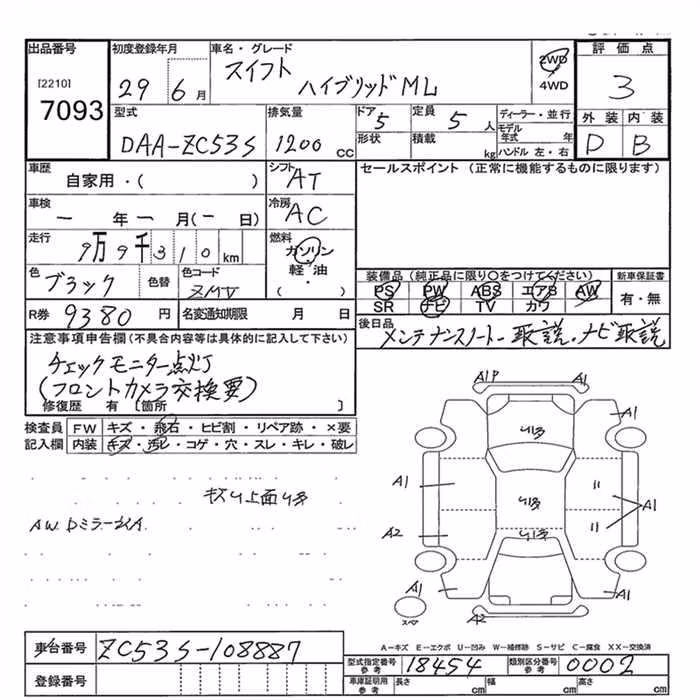 出品番号 初度登録年月 車名・グレード 評価点
[2210] 7093 29 6月 スイフト ハイブリッドML 2WD 4WD 3
型式 排気量 ドア 5 定員 5人 ディーラー・並行 外装 内装
DAA-ZC53S 1200 CC 形状 積載 kg モデル年式 年 ハンドル 左・右 D B
車歴 シフト AT セールスポイント (正常に機能するものに限ります)
自家用・( )
車検 冷房 AC
一 年 一 月(一 日)
走行 燃料
9万9千310km ガソリン
軽・油
( ・ )
色 ブラック 色替 色コード ZMV
装備品(純正品に限り○をつけてください) 新車保証書
PS PW ABS エアB AW 有・無
SR ナビ TV カワ
R券 9380円 名変通知期限 月 日
後日品 メンテナンスノート・取説・ナビ取説
注意事項申告欄(不具合内容等は具体的に記入して下さい)
チェックモニター点灯
(フロントカメラ交換要)
修復歴 有 [箇所 ]
検査員 FW キズ・飛石・ヒビ割・リペア跡・×要
記入欄 内装 キズ・汚レ・コゲ・穴・スレ・キレ・破レ
A1P A1
A1
A1 A1
A2
A1 A1
スペア A2
A-キズ E-エクボ U-凹み W-補修跡 S-サビ C-腐食 XX-交換済
車台番号 ZC53S-108887
型式指定番号 参考 18454 類別区分番号 参考 0002
登録番号
車庫証明用 参考 長さ cm 幅 cm 高さ cm